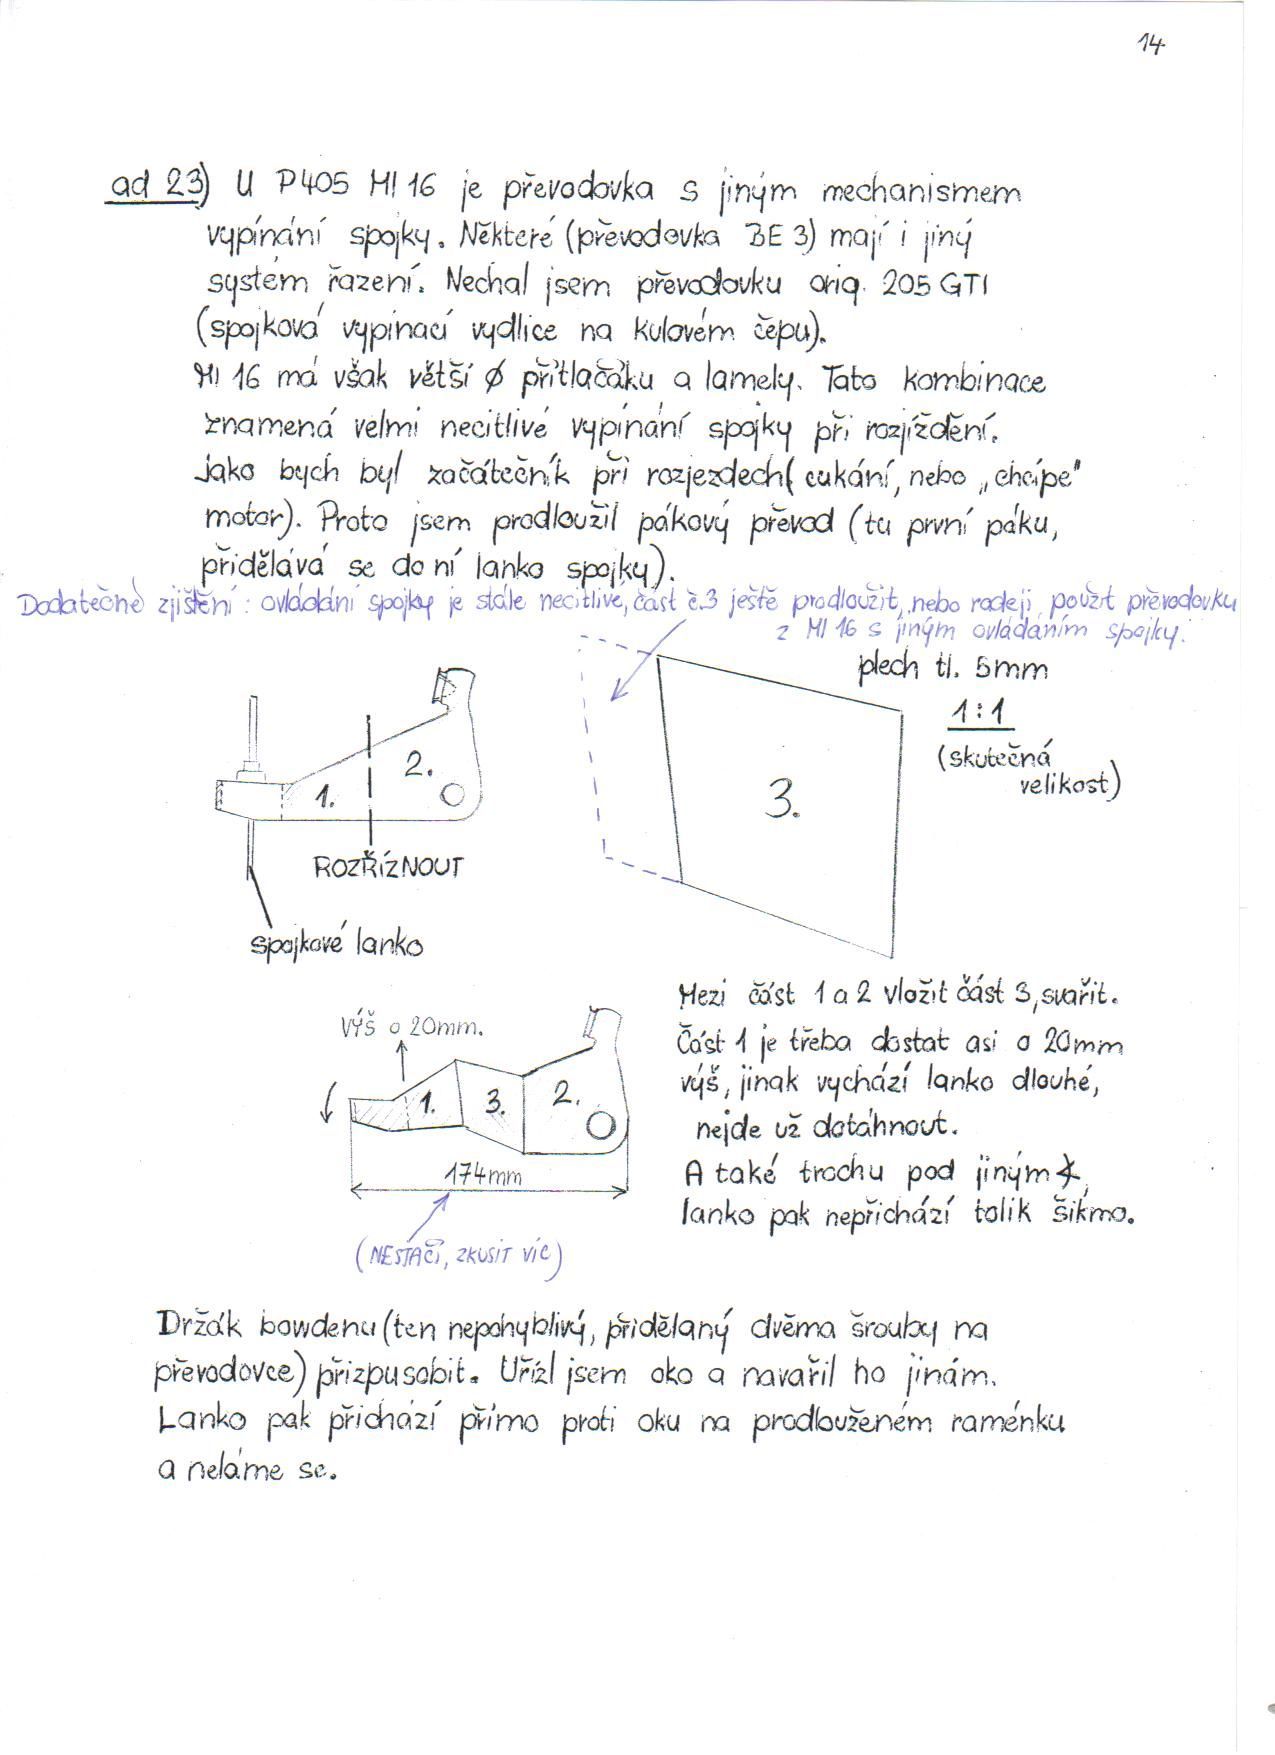 14
ad 23) U P405 MI 16 je převodovka s jiným mechanismem
vypínání spojky. Některé (převodovka BE 3) mají i jiný
systém řazení. Nechal jsem převodovku orig. 205 GTI
(spojková vypínací vydlice na kulovém čepu).
MI 16 má však větší ⌀ přítlačáku a lamely. Tato kombinace
znamená velmi necitlivé vypínání spojky při rozjíždění.
Jako bych byl začátečník při rozjezdech (cukání, nebo „chcípe"
motor). Proto jsem prodloužil pákový převod (tu první páku,
přidělává se do ní lanko spojky).
Dodatečné zjištění: ovládání spojky je stále necitlivé, část č.3 ještě prodloužit, nebo radeji použít převodovku
z MI 16 s jiným ovládáním spojky.
plech tl. 5mm
1:1
(skutečná
velikost)
1.
2.
3.
ROZŘÍZNOUT
spojkové lanko
Mezi část 1 a 2 vložit část 3, svařit.
Část 1 je třeba dostat asi o 20mm
výš, jinak vychází lanko dlouhé,
nejde už dotáhnout.
A také trochu pod jiným ∢,
lanko pak nepřichází tolik šikmo.
VÝŠ o 20mm.
1.
3.
2.
174mm
(NESTAČÍ, ZKUSIT VÍC)
Držák bowdenu (ten nepohyblivý, přidělaný dvěma šrouby na
převodovce) přizpusobit. Uřízl jsem oko a navařil ho jinám.
Lanko pak přichází přímo proti oku na prodlouženém raménku
a neláme se.